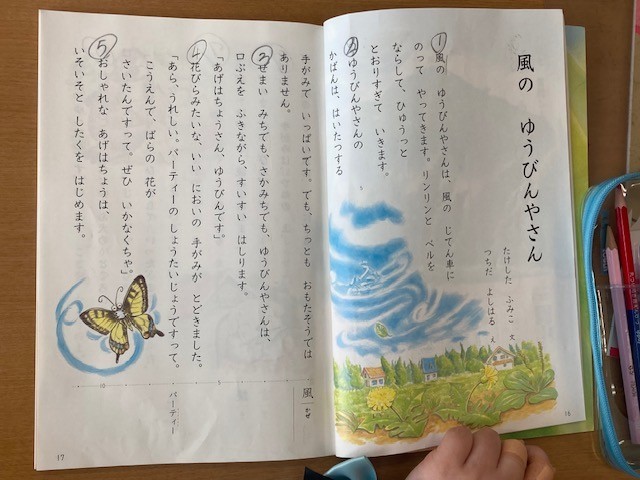 風の ゆうびんやさん
たけした ふみこ 文
つちだ よしはる え
①風の ゆうびんやさんは、風の じてん車に
のって やってきます。リンリンと ベルを
ならして、ひゅうっと
とおりすぎて いきます。
②ゆうびんやさんの
かばんは、はいたつする
手がみで いっぱいです。でも、ちっとも おもたそうでは
ありません。
③せまい みちでも、さかみちでも、ゆうびんやさんは、
口ぶえを ふきながら、すいすい はしります。
「あげはちょうさん、ゆうびんです」
④花びらみたいな、いい においの 手がみが とどきました。
「あら、うれしい。パーティーの しょうたいじょうですって。
こうえんで、ばらの 花が
さいたんですって。ぜひ いかなくちゃ。」
⑤おしゃれな あげはちょうは、
いそいそと したくを はじめます。
風 かぜ
パーティー
5
5
10
16
17